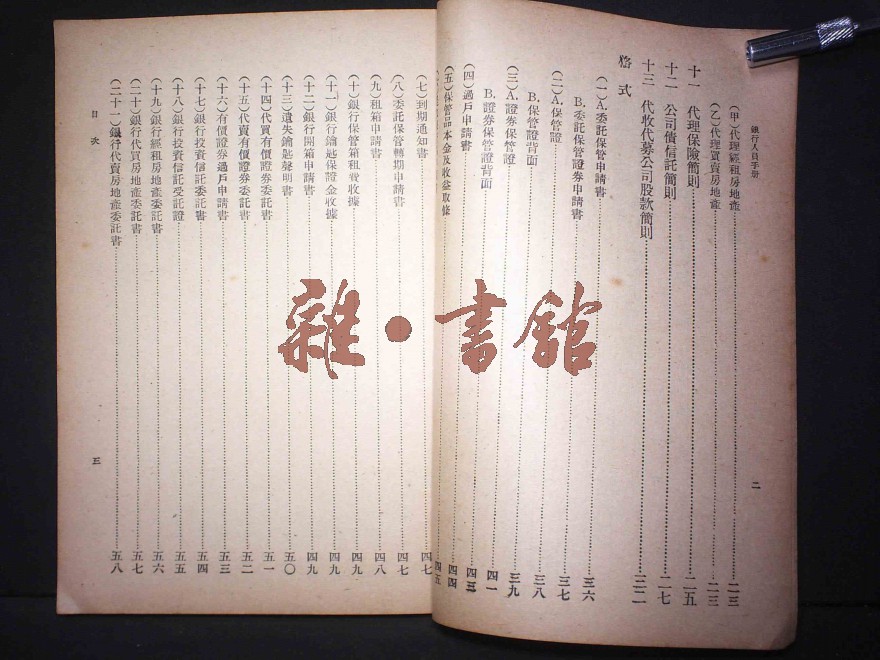 銀行人員手册
二
(甲)代理經租房地產……二三
(乙)代理買賣房地產……二三
十一 代理保險簡則……二五
十二 公司債信託簡則……二七
十三 代收代募公司股款簡則……三二
格式
(一)A.委託保管申請書……三六
B.委託保管證券申請書……三七
(二)A.保管證……三八
B.保管證背面……三九
(三)A.證券保管證……
B.證券保管證背面……四一
(四)過戶申請書……四三
(五)保管品本金及收益取條……四四
四五
(七)到期通知書……四七
(八)委託保管轉期申請書……四七
(九)租箱申請書……四八
(十)銀行保管箱租費收據……四九
(十一)銀行鑰匙保證金收據……四九
(十二)銀行開箱申請書……四九
(十三)遺失鑰匙聲明書……五〇
(十四)代買有價證券委託書……五一
(十五)代賣有價證券委託書……五二
(十六)有價證券過戶申請書……五三
(十七)銀行投資信託委託書……五四
(十八)銀行投資信託受託證……五五
(十九)銀行經租房地產委託書……五六
(二十)銀行代買房地產委託書……五七
(二十一)銀行代賣房地產委託書……五八
目次
三
雜·書館